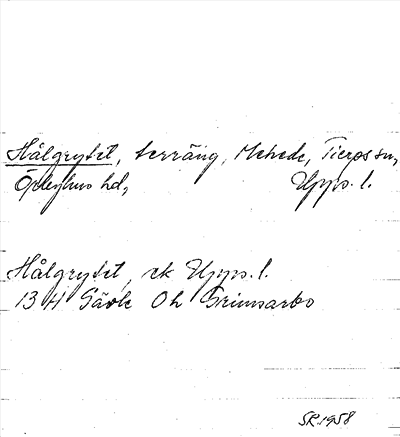 Hålgrytet, terräng, Mehede, Tierps sn,
Örbyhus hd, Upps. l.
Hålgrytet, ek Upps. l.
13 H Gävle Oh Grimsarbo
SR 1958